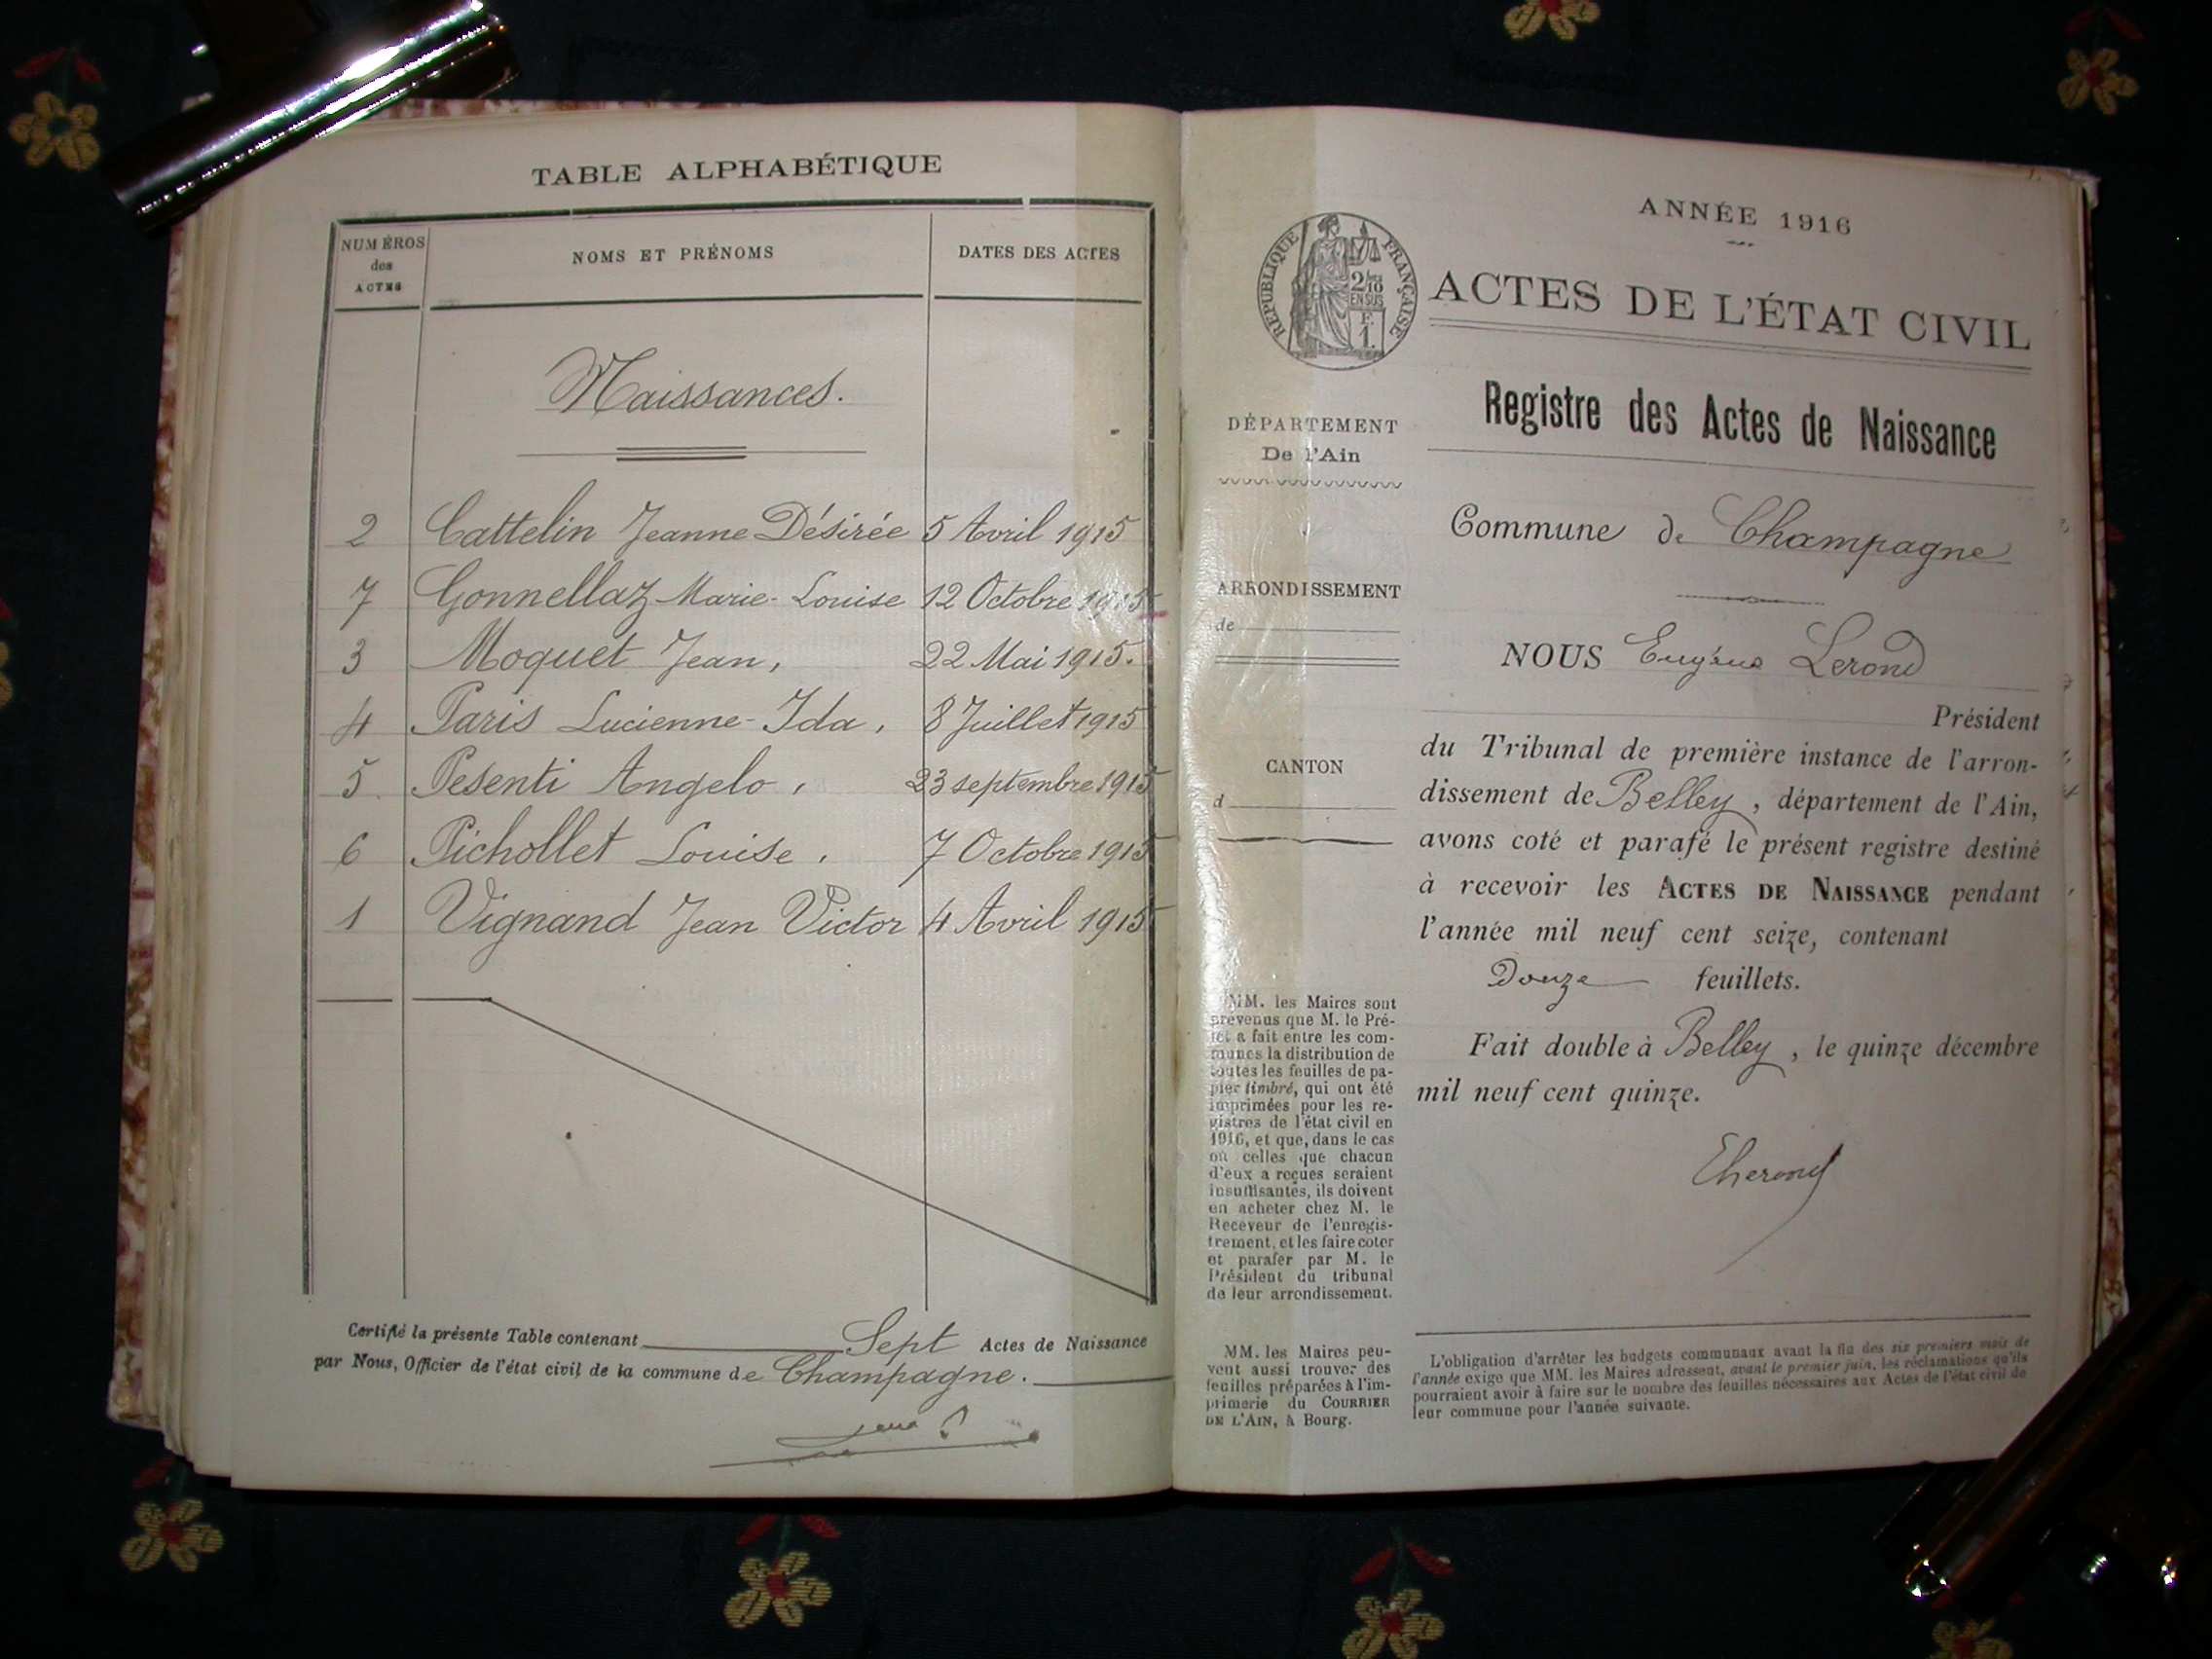 TABLE ALPHABÉTIQUE
NUMÉROS des ACTES
NOMS ET PRÉNOMS
DATES DES ACTES
Naissances.
2 Cattelin Jeanne Désirée 5 Avril 1915
7 Gonnellaz Marie-Louise 12 Octobre 1915
3 Moquet Jean, 22 Mai 1915.
4 Paris Lucienne-Ida, 8 Juillet 1915
5. Pesenti Angelo, 23 septembre 1915
6 Pichollet Louise, 7 Octobre 1915
1 Vignand Jean Victor 4 Avril 1915
Certifié la présente Table contenant Sept Actes de Naissance
par Nous, Officier de l'état civil de la commune de Champagne.
ANNÉE 1916
RÉPUBLIQUE FRANÇAISE
2/10
EN SUS
F.
1.
ACTES DE L'ÉTAT CIVIL
Registre des Actes de Naissance
DÉPARTEMENT
De l'Ain
ARRONDISSEMENT
de
CANTON
d
MM. les Maires sont
prévenus que M. le Pré-
fet a fait entre les com-
munes la distribution de
toutes les feuilles de pa-
pier timbré, qui ont été
imprimées pour les re-
gistres de l'état civil en
1916, et que, dans le cas
où celles que chacun
d'eux a reçues seraient
insuffisantes, ils doivent
en acheter chez M. le
Receveur de l'enregis-
trement, et les faire coter
et parafer par M. le
Président du tribunal
de leur arrondissement.
MM. les Maires peu-
vent aussi trouver des
feuilles préparées à l'im-
primerie du COURRIER
DE L'AIN, à Bourg.
Commune de Champagne
NOUS Eugène Lerond
Président
du Tribunal de première instance de l'arron-
dissement de Belley, département de l'Ain,
avons coté et parafé le présent registre destiné
à recevoir les ACTES DE NAISSANCE pendant
l'année mil neuf cent seize, contenant
Douze feuillets.
Fait double à Belley, le quinze décembre
mil neuf cent quinze.
L'obligation d'arrêter les budgets communaux avant la fin des six premiers mois de
l'année exige que MM. les Maires adressent, avant le premier juin, les réclamations qu'ils
pourraient avoir à faire sur le nombre des feuilles nécessaires aux Actes de l'état civil de
leur commune pour l'année suivante.